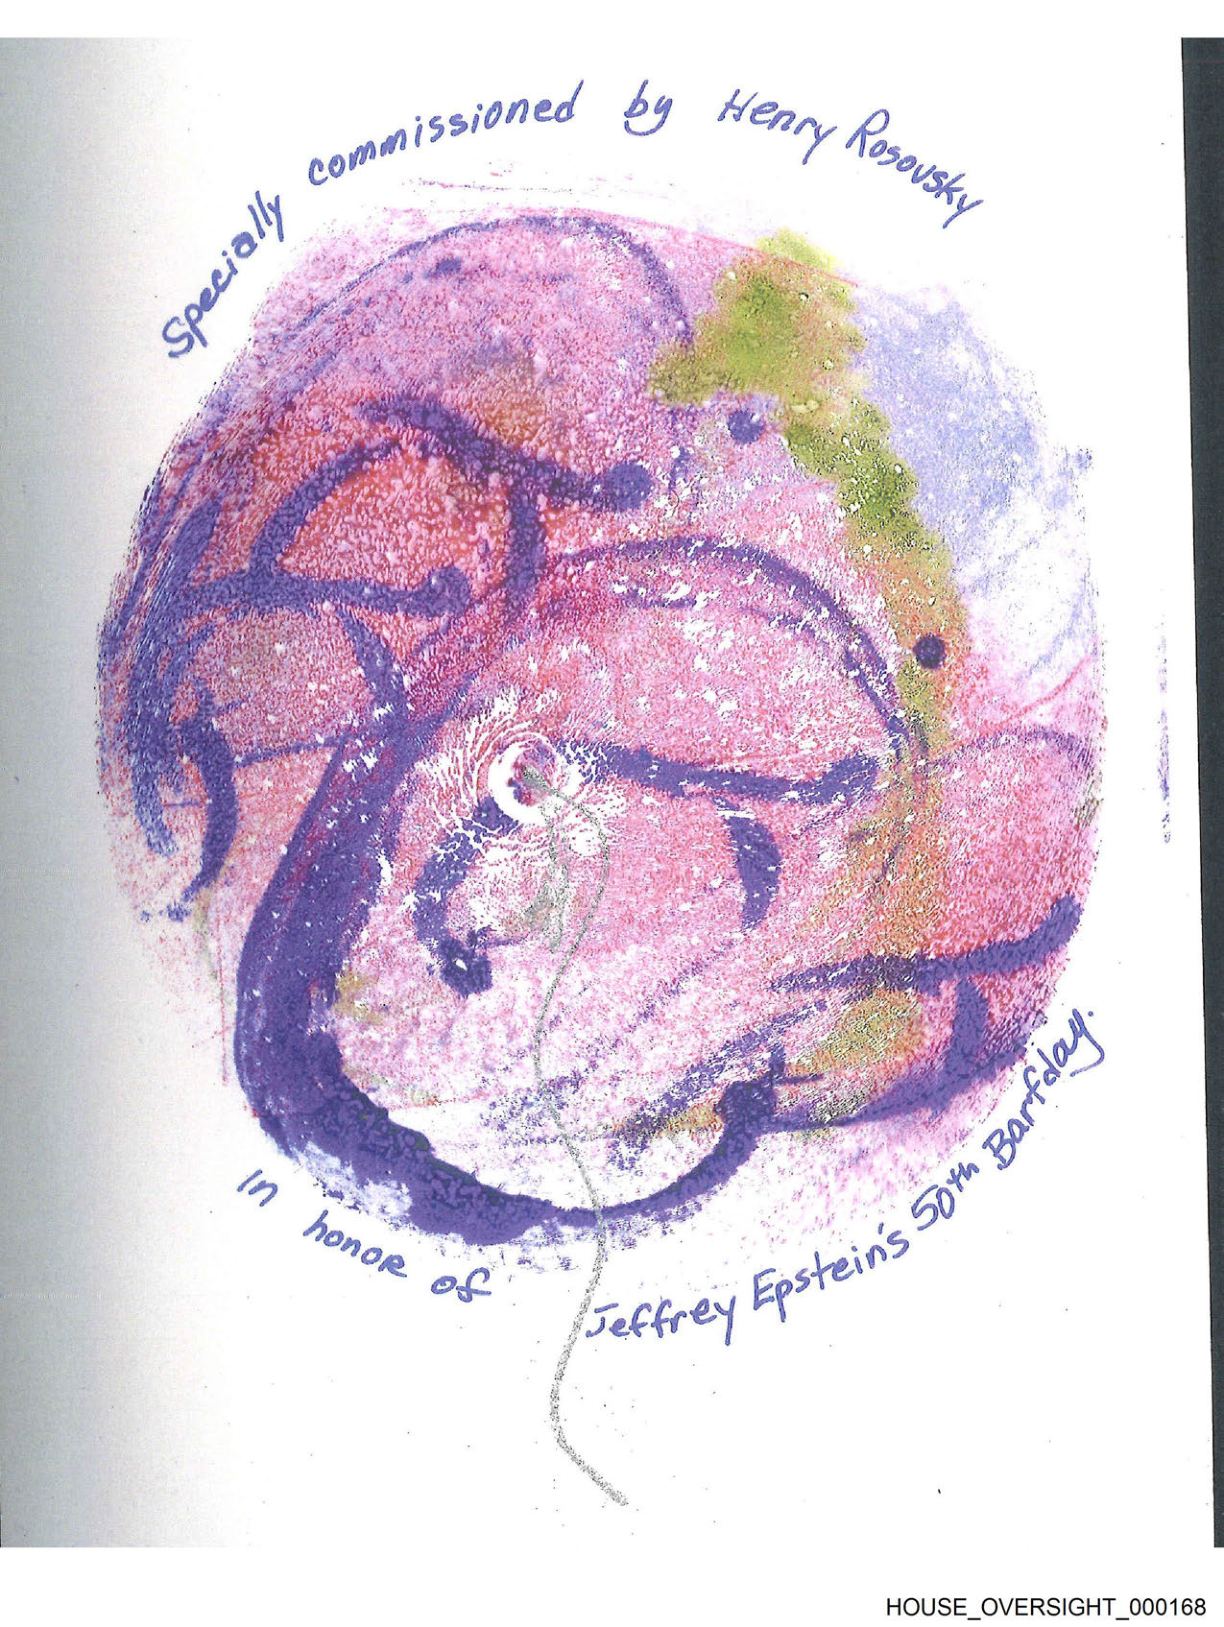 Specially commissioned by Henry Rosovsky
In honor of Jeffrey Epstein's 50th Barfday.
HOUSE_OVERSIGHT_000168